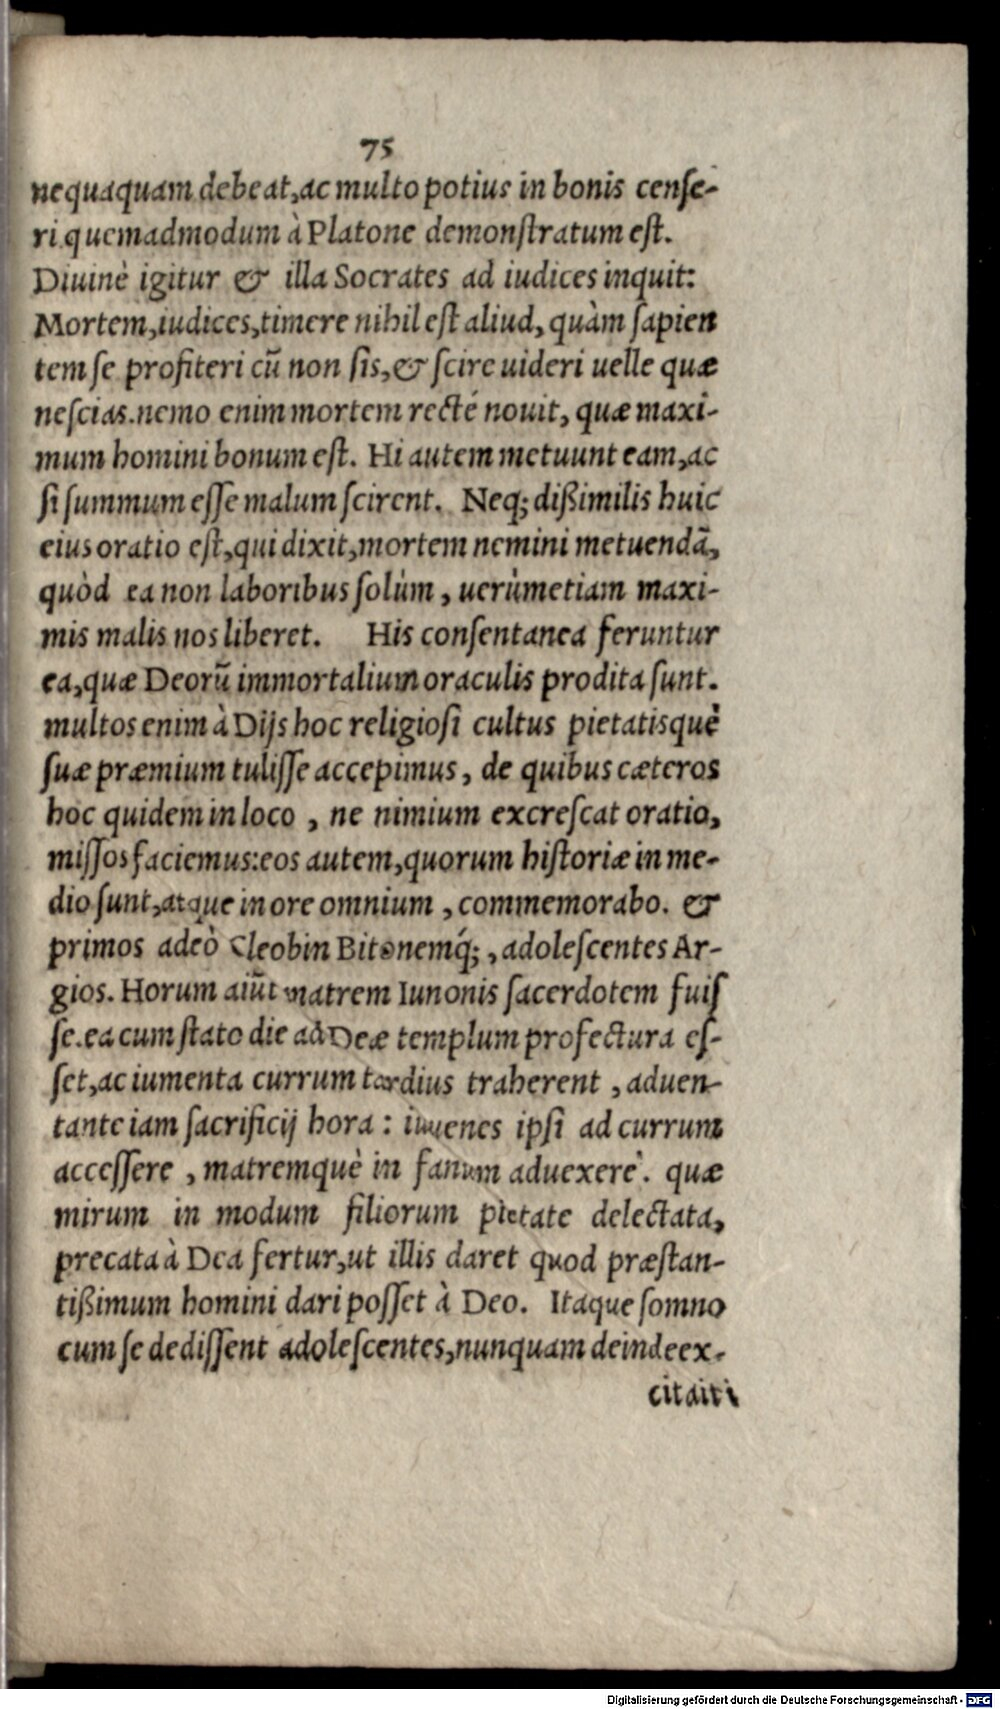 75
nequaquam debeat, ac multo potius in bonis cense-
ri.quemadmodum à Platone demonstratum est.
Diuinè igitur & illa Socrates ad iudices inquit:
Mortem, iudices, timere nihil est aliud, quàm sapien
tem se profiteri cũ non sis, & scire uideri uelle quæ
nescias. nemo enim mortem recté nouit, quæ maxi-
mum homini bonum est. Hi autem metuunt eam, ac
si summum esse malum scirent. Neq; dißimilis huic
eius oratio est, qui dixit, mortem nemini metuendã,
quòd ea non laboribus solùm, uerùmetiam maxi-
mis malis nos liberet. His consentanea feruntur
ea, quæ Deorũ immortalium oraculis prodita sunt.
multos enim à Dijs hoc religiosi cultus pietatisquè
suæ præmium tulisse accepimus, de quibus cæteros
hoc quidem in loco, ne nimium excrescat oratio,
missos faciemus: eos autem, quorum historiæ in me-
dio sunt, atque in ore omnium, commemorabo. &
primos adeò Cleobin Bitonemq́;, adolescentes Ar-
gios. Horum aiũt matrem Iunonis sacerdotem fuis
se. ea cum stato die ad Deæ templum profectura es-
set, ac iumenta currum tardius traherent, aduen-
tante iam sacrificij hora: iuuenes ipsi ad currum
accessere, matremquè in fanum aduexerè. quæ
mirum in modum filiorum pietate delectata,
precata à Dea fertur, ut illis daret quod præstan-
tißimum homini dari posset à Deo. Itaque somno
cum se dedissent adolescentes, nunquam deinde ex-
citaiti
Digitalisierung gefördert durch die Deutsche Forschungsgemeinschaft - DFG